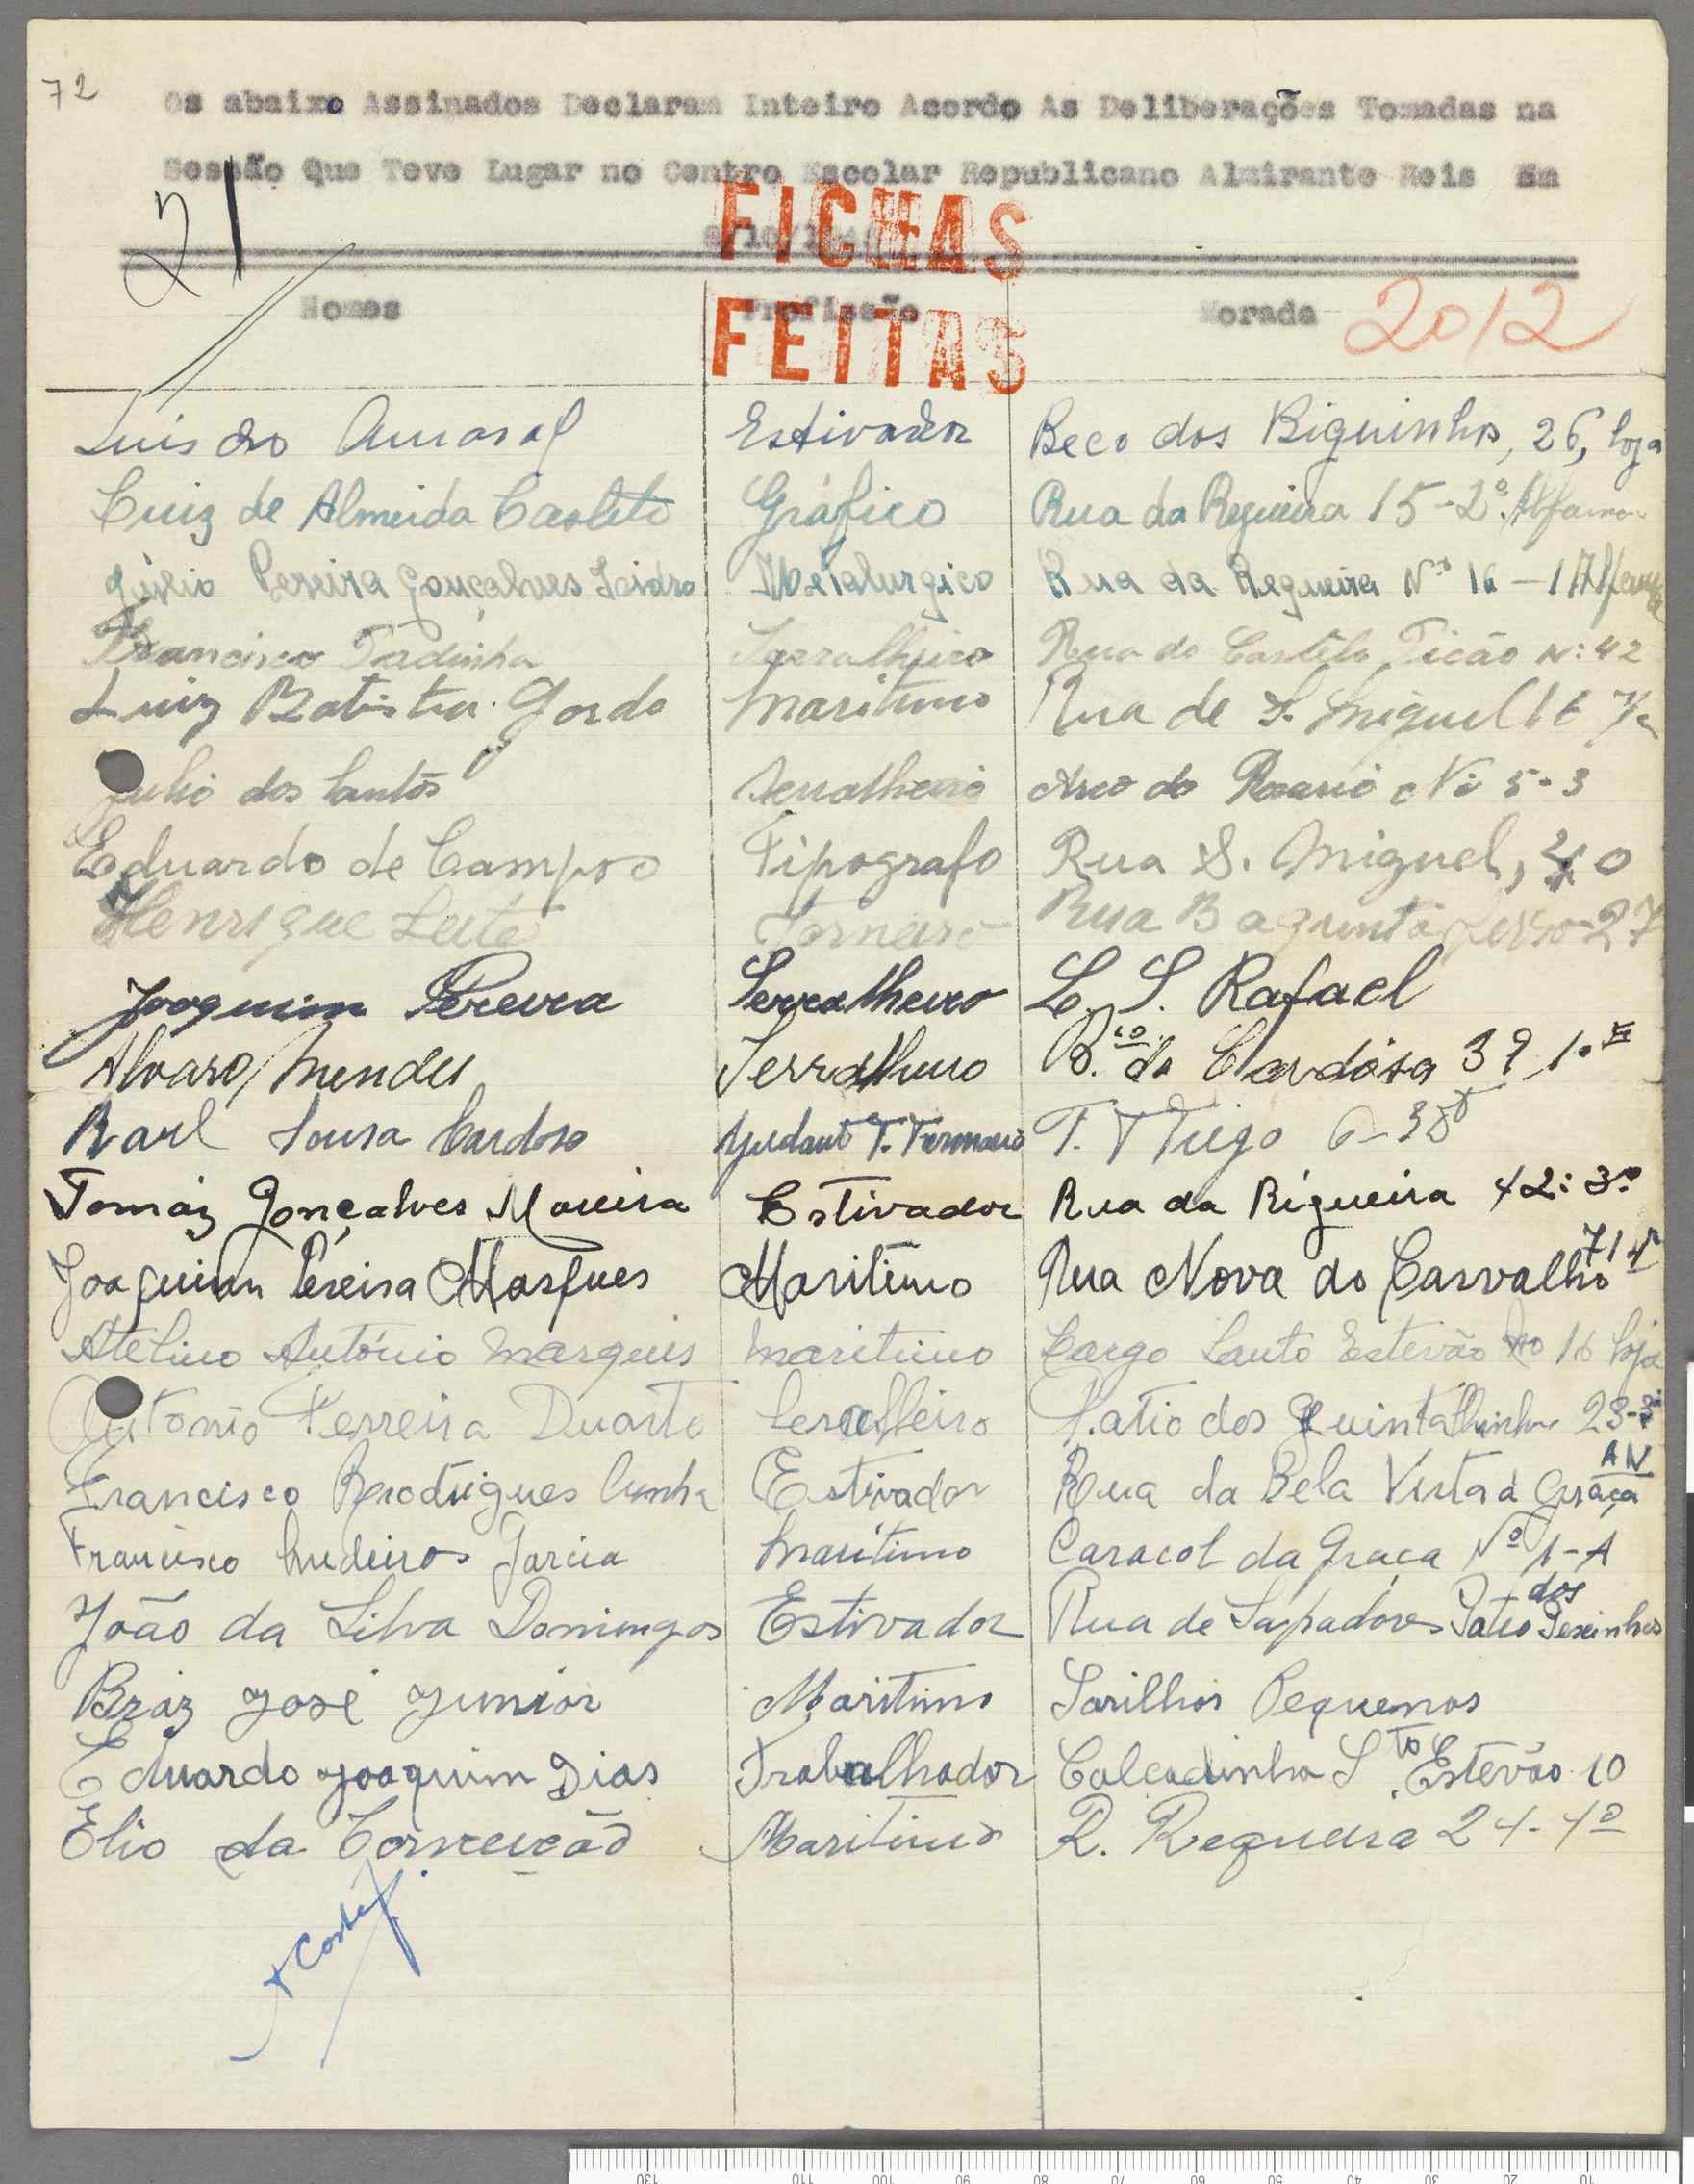 72
Os abaixo Assinados Declaram Inteiro Acordo As Deliberações Tomadas na
Sessão Que Teve Lugar no Centro Escolar Republicano Almirante Reis Em
21
FICHAS
FEITAS
Nomes Profissão Morada 2012
Luís do Amaral Estivador Beco dos Biguinhos, 26, loja
Luiz de Almeida Gráfico Rua da Regueira 15-2º. Alfama
Júlio Pereira Gonçalves Isidro Metalurgico Rua da Regueira Nº 16-1 Alfama
Francisco Tadinha Rua do Castelo Picão Nº: 42
Luiz Batista Gordo Maritimo Rua de S. Miguel 16
Julio dos Santos Serralheiro Arco do Rosario Nº 5-3
Eduardo de Campos Tipografo Rua S. Miguel,
Henrique Leite Torneiro Rua 27
Joaquim Pereira Serralheiro L. S. Rafael
Alvaro Mendes Serralheiro B.co do Cardósa 39 1.º E
Raul Sousa Cardoso T.
Tomáz Gonçalves Moreira Estivador Rua da Rigueira 42: 3.º
Joaquim Pereira Marques Maritimo Rua Nova do Carvalho 71 4º
António Marques maritimo Largo Santo Estevão No 16 loja
António Ferreira Duarte Patio dos Quintalinhos 23-3
Francisco Rrodrigues Cunha Estivador Rua da Bela Vista á Graça AN
Francisco Garcia Marítimo Caracol da Graça Nº 1-A
João da Silva Domingos Estivador Rua de Sapadores Pateo dos Peixinhos
Braz José Junior Maritimo Sarilhos Pequenos
Eduardo Joaquim Dias Trabalhador Calcadinha Sto Estevão 10
Elio da Conceição Maritimo R. Regueira 24-4º